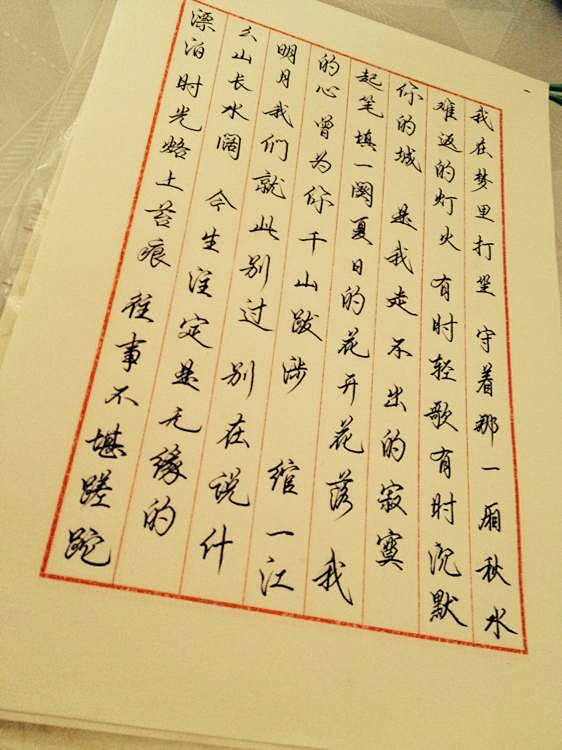 我在梦里打坐 守着那一厢秋水
难返的灯火 有时轻歌有时沉默
你的城 是我走不出的寂寞
起笔填一阕夏日的花开花落 我
的心曾为你千山跋涉 绾一江
明月我们就此别过 别在说什
么山长水阔 今生注定是无缘的
漂泊时光烙上苔痕 往事不堪蹉跎